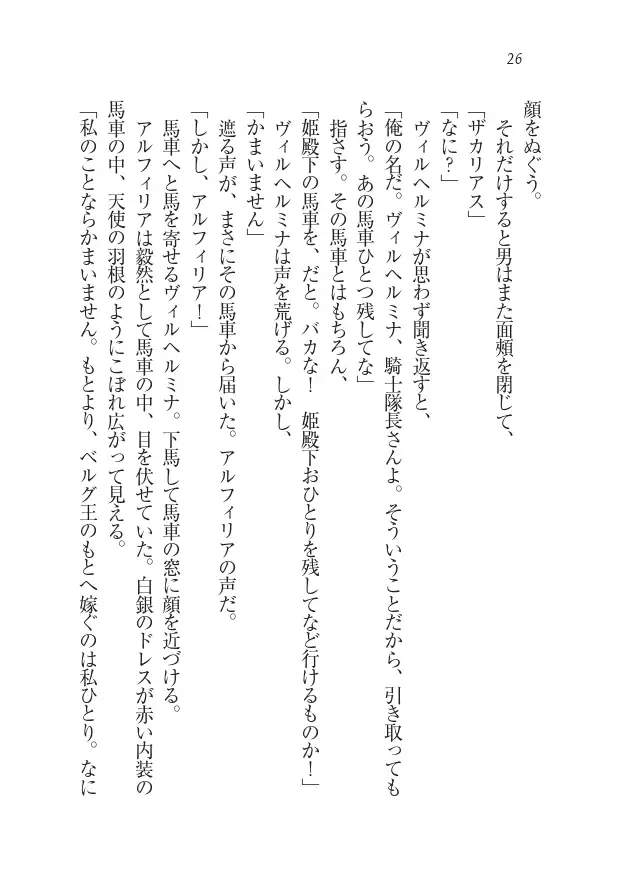 26
顔をぬぐう。
　それだけすると男はまた面頬を閉じて、
「ザカリアス」
「なに？」
　ヴィルヘルミナが思わず聞き返すと、
「俺の名だ。ヴィルヘルミナ、騎士隊長さんよ。そういうことだから、引き取っても
らおう。あの馬車ひとつ残してな」
　指さす。その馬車とはもちろん、
「姫殿下の馬車を、だと。バカな！　姫殿下おひとりを残してなど行けるものか！」
　ヴィルヘルミナは声を荒げる。しかし、
「かまいません」
　遮る声が、まさにその馬車から届いた。アルフィリアの声だ。
「しかし、アルフィリア！」
　馬車へと馬を寄せるヴィルヘルミナ。下馬して馬車の窓に顔を近づける。
　アルフィリアは毅然として馬車の中、目を伏せていた。白銀のドレスが赤い内装の
馬車の中、天使の羽根のようにこぼれ広がって見える。
「私のことならかまいません。もとより、ベルグ王のもとへ嫁ぐのは私ひとり。なに